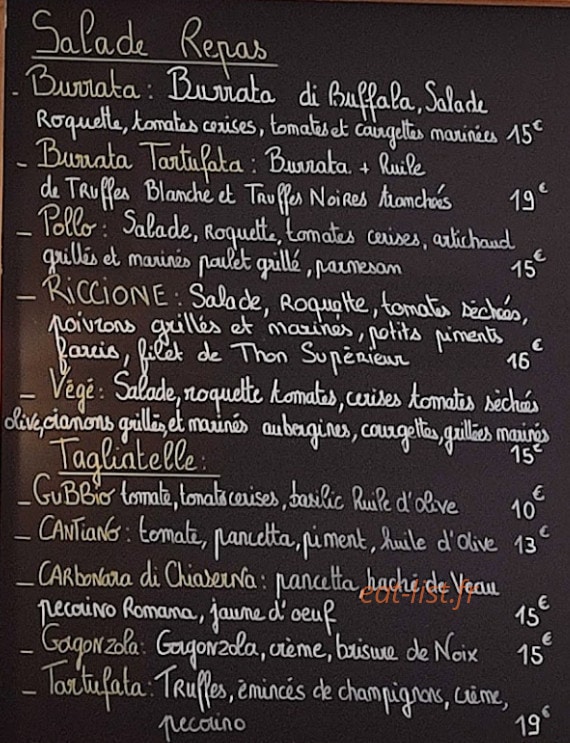 Salade Repas
- Burrata : Burrata di Buffala, Salade
Roquette, tomates cerises, tomates et courgettes marinées 15€
- Burrata Tartufata : Burrata + Huile
de Truffes Blanche et Truffes Noires tranchées 19€
- Pollo : Salade, Roquette, tomates cerises, artichaud
grillés et marinés poulet grillé, parmesam 15€
- RICCIONE : Salade, Roquette, tomates séchées,
poivrons grillés et marinés, petits piments
farcis, filet de Thon Supérieur 16€
- Végé : Salade, roquette tomates, cerises tomates séchées
olive, oignons grillés, et marinés aubergines, courgettes, grillées marinés
15€
Tagliatelle :
- GUBBIO tomate, tomate cerises, basilic Huile d'olive 10€
- CANTIANO : tomate, pancetta, piment, huile d'Olive 13€
- CARbonara di Chiaserna : pancetta, haché de Veau
pecorino Romana, jaune d'oeuf 15€
- Gorgonzola : Gorgonzola, crème, brisure de Noix 15€
- Tartufata : Truffes, émincés de champignons, crème,
pecorino 19€
eat-list.fr